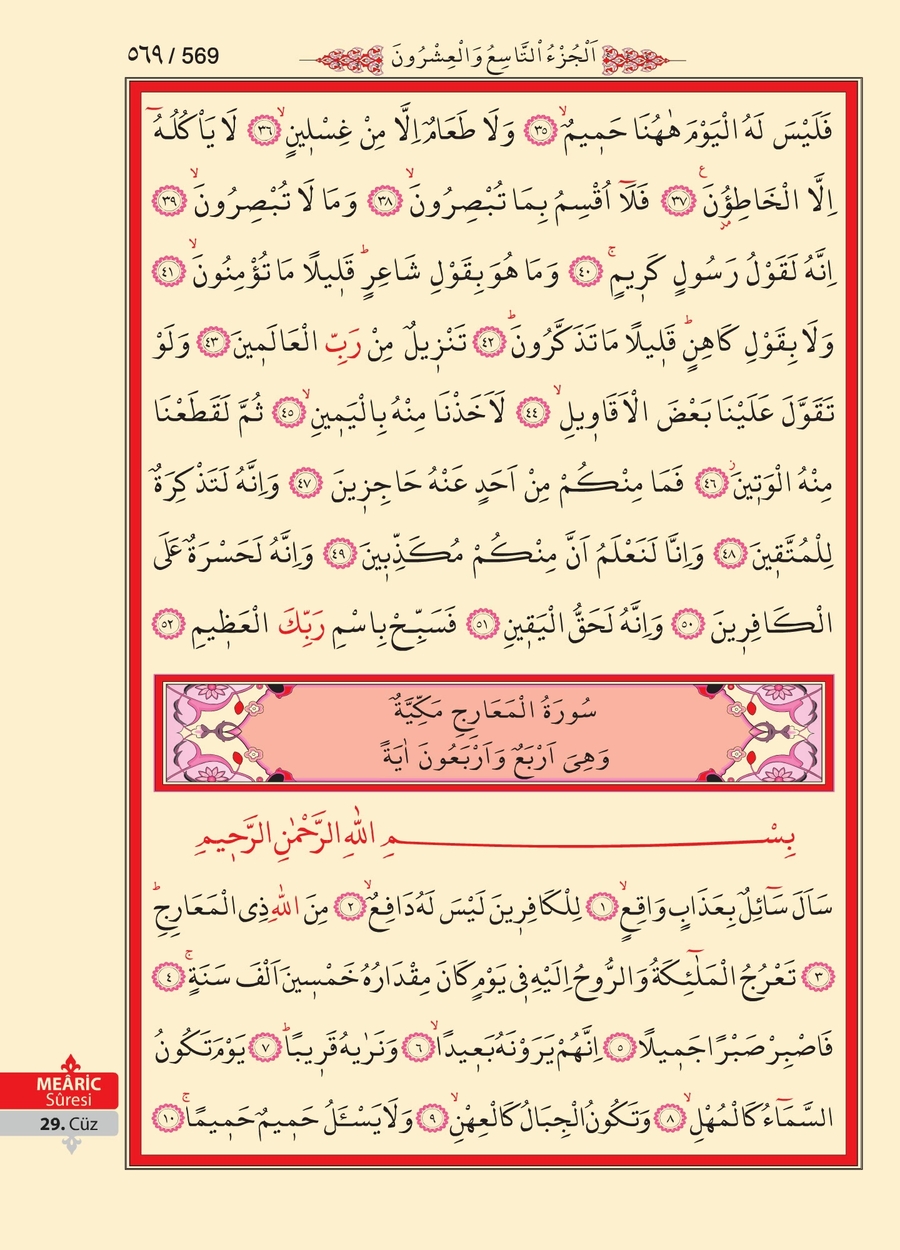 ٥٦٩ / 569
اَلْجُزْءُ التَّاسِعُ وَالْعِشْرُونَ
فَلَيْسَ لَهُ الْيَوْمَ هٰهُنَا حَمٖيمٌۙ ﴿٣٥﴾ وَلَا طَعَامٌ اِلَّا مِنْ غِسْلٖينٍۙ ﴿٣٦﴾ لَا يَاْكُلُهُٓ
اِلَّا الْخَاطِؤُ۫نَ ﴿٣٧﴾ فَلَٓا اُقْسِمُ بِمَا تُبْصِرُونَۙ ﴿٣٨﴾ وَمَا لَا تُبْصِرُونَۙ ﴿٣٩﴾
اِنَّهُ لَقَوْلُ رَسُولٍ كَرٖيمٍۚ ﴿٤٠﴾ وَمَا هُوَ بِقَوْلِ شَاعِرٍؕ قَلٖيلًا مَا تُؤْمِنُونَۙ ﴿٤١﴾
وَلَا بِقَوْلِ كَاهِنٍؕ قَلٖيلًا مَا تَذَكَّرُونَؕ ﴿٤٢﴾ تَنْزٖيلٌ مِنْ رَبِّ الْعَالَمٖينَ ﴿٤٣﴾ وَلَوْ
تَقَوَّلَ عَلَيْنَا بَعْضَ الْاَقَاوٖيلِۙ ﴿٤٤﴾ لَاَخَذْنَا مِنْهُ بِالْيَمٖينِۙ ﴿٤٥﴾ ثُمَّ لَقَطَعْنَا
مِنْهُ الْوَتٖينَؗ ﴿٤٦﴾ فَمَا مِنْكُمْ مِنْ اَحَدٍ عَنْهُ حَاجِزٖينَ ﴿٤٧﴾ وَاِنَّهُ لَتَذْكِرَةٌ
لِلْمُتَّقٖينَ ﴿٤٨﴾ وَاِنَّا لَنَعْلَمُ اَنَّ مِنْكُمْ مُكَذِّبٖينَ ﴿٤٩﴾ وَاِنَّهُ لَحَسْرَةٌ عَلَى
الْكَافِرٖينَ ﴿٥٠﴾ وَاِنَّهُ لَحَقُّ الْيَقٖينِ ﴿٥١﴾ فَسَبِّحْ بِاسْمِ رَبِّكَ الْعَظٖيمِ ﴿٥٢﴾
سُورَةُ الْمَعَارِجِ مَكِّيَّةٌ
وَهِىَ اَرْبَعٌ وَاَرْبَعُونَ اٰيَةً
بِسْمِ اللّٰهِ الرَّحْمٰنِ الرَّحٖيمِ
سَاَلَ سَٓائِلٌ بِعَذَابٍ وَاقِعٍۙ ﴿١﴾ لِلْكَافِرٖينَ لَيْسَ لَهُ دَافِعٌۙ ﴿٢﴾ مِنَ اللّٰهِ ذِى الْمَعَارِجِؕ
﴿٣﴾ تَعْرُجُ الْمَلٰٓئِكَةُ وَالرُّوحُ اِلَيْهِ فٖى يَوْمٍ كَانَ مِقْدَارُهُ خَمْسٖينَ اَلْفَ سَنَةٍۚ ﴿٤﴾
فَاصْبِرْ صَبْرًا جَمٖيلًا ﴿٥﴾ اِنَّهُمْ يَرَوْنَهُ بَعٖيدًاۙ ﴿٦﴾ وَنَرٰيهُ قَرٖيبًاؕ ﴿٧﴾ يَوْمَ تَكُونُ
السَّمَٓاءُ كَالْمُهْلِۙ ﴿٨﴾ وَتَكُونُ الْجِبَالُ كَالْعِهْنِۙ ﴿٩﴾ وَلَا يَسْـَٔلُ حَمٖيمٌ حَمٖيمًاۚ ﴿١٠﴾
MEÂRİC
Sûresi
29. Cüz